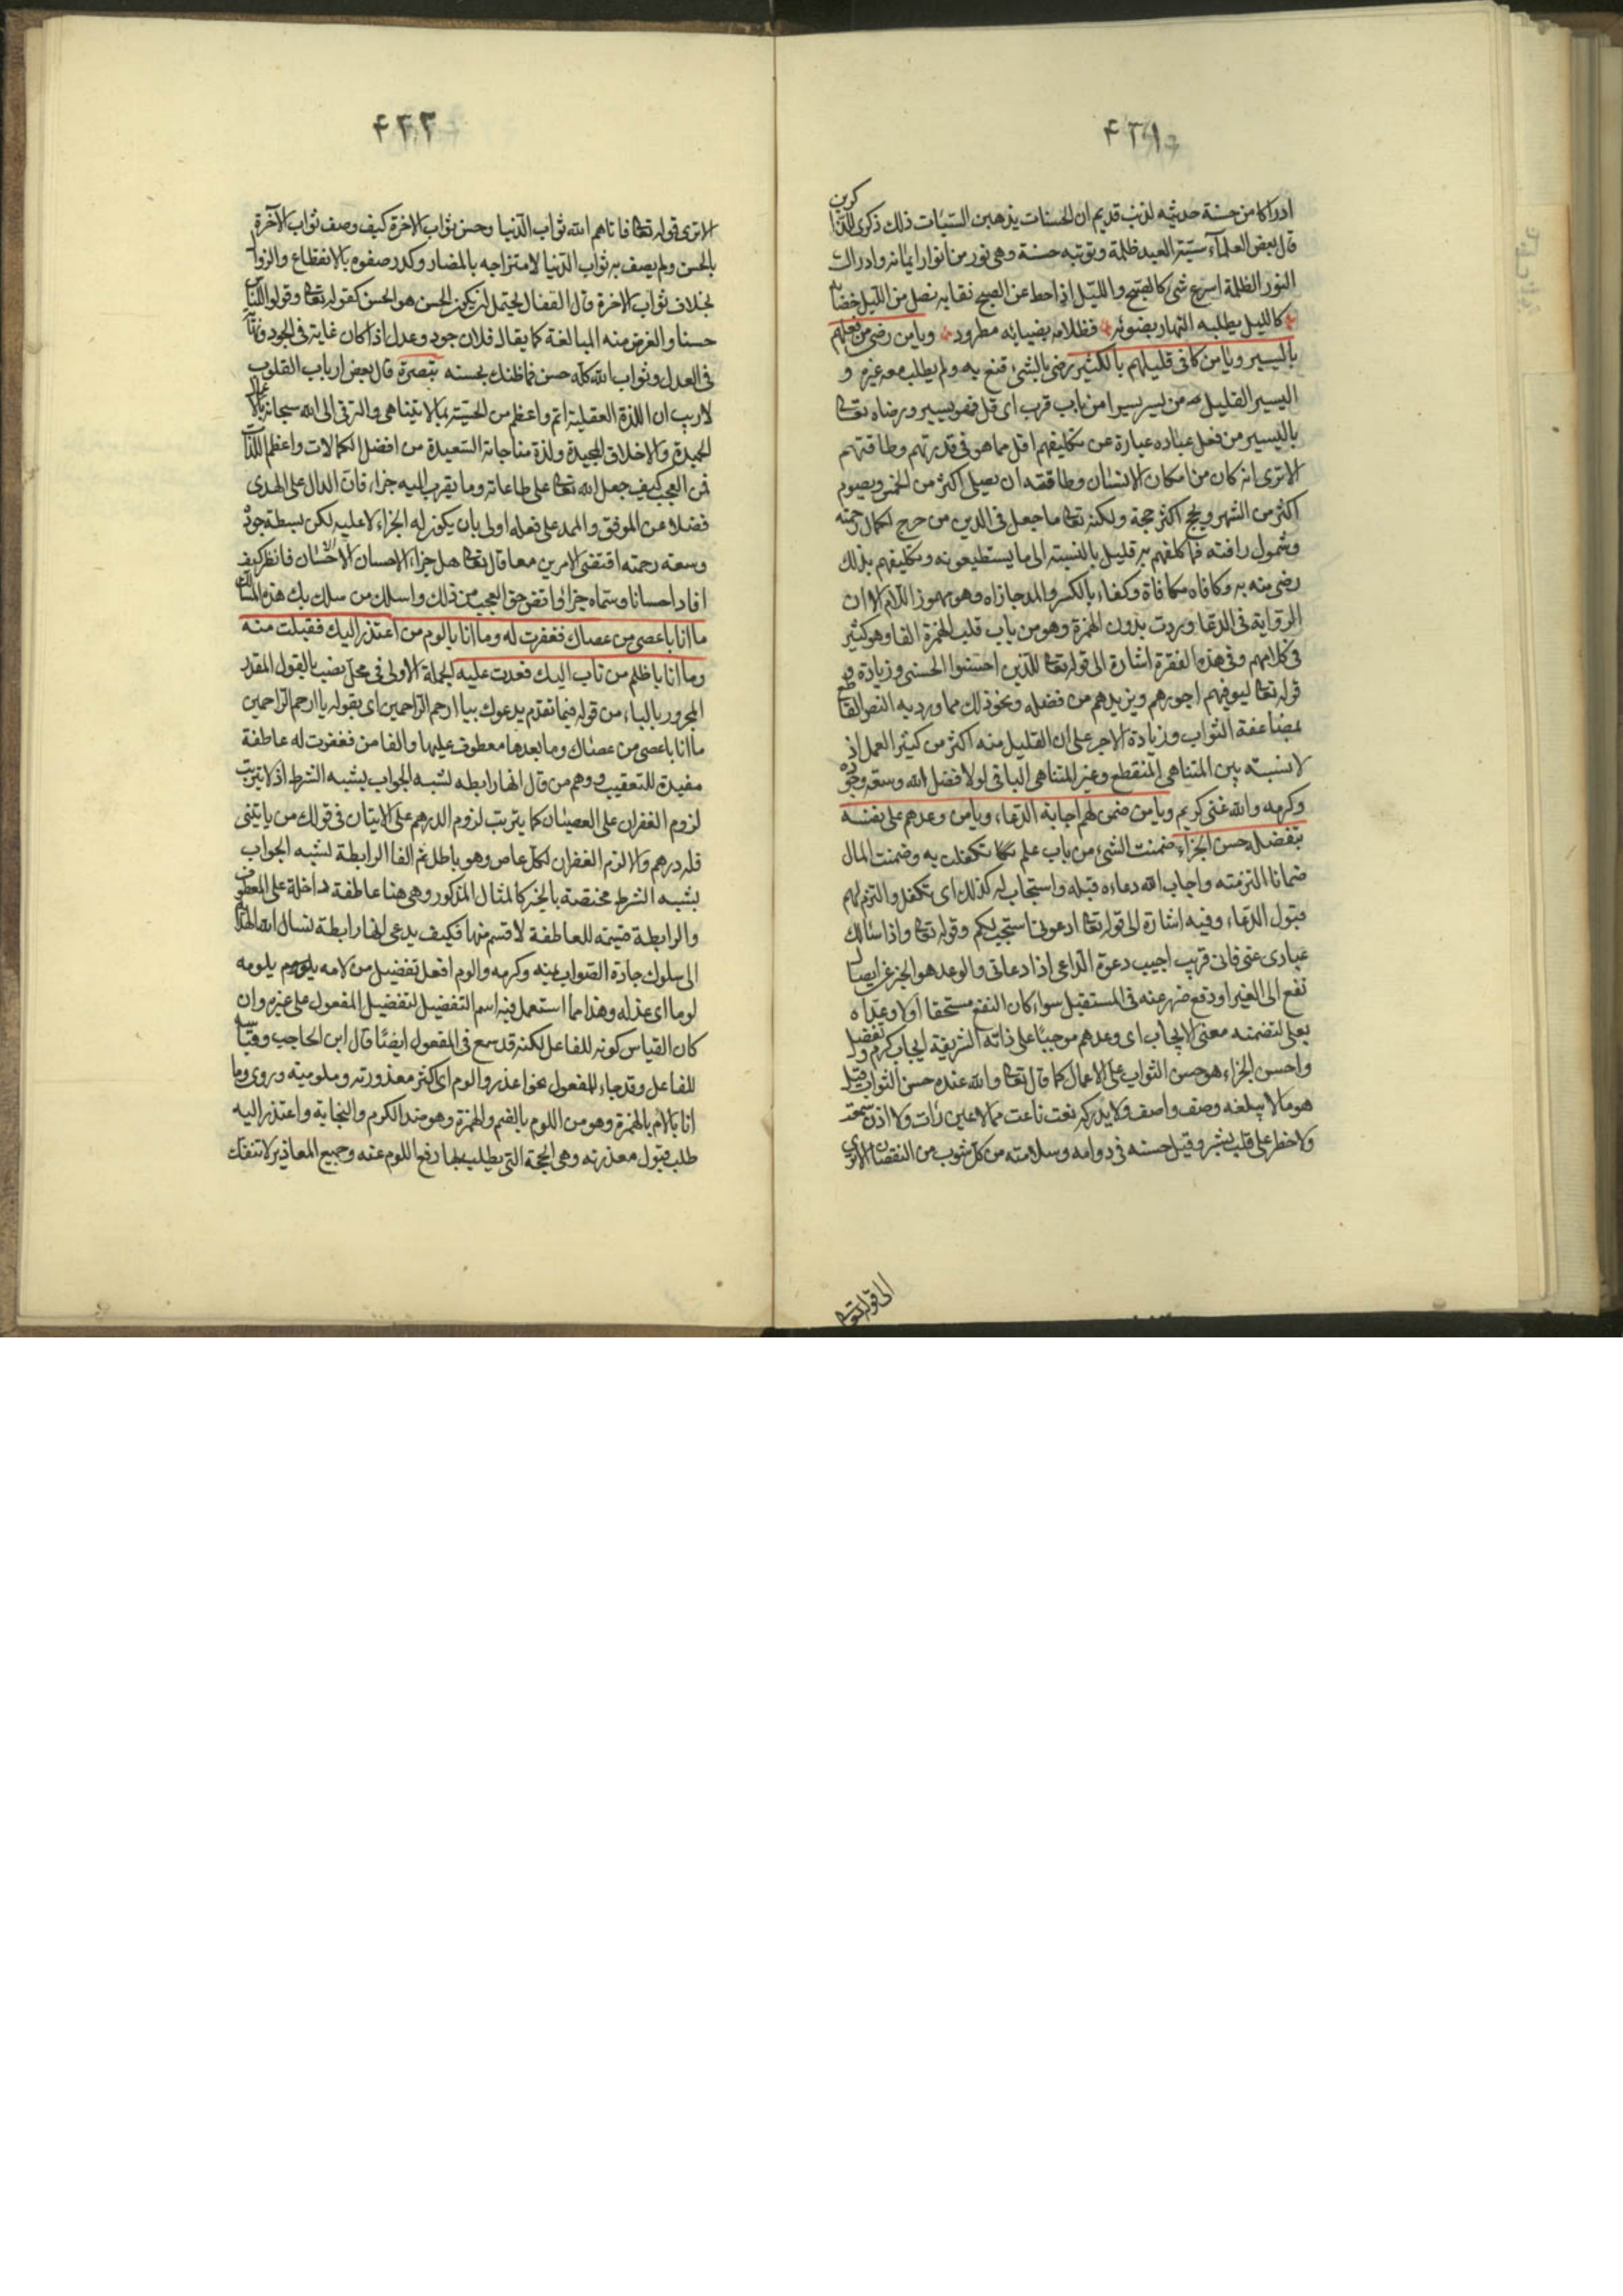 ۴۳۱
ادراكا من حسنة حديثه لذنب قديم ان الحسنات يذهبن السيئات ذلك ذكرى للذاكرين
قال بعض العلماء سيئة العبد ظلمة وتوبته حسنة وهى نور من انوار ايمانه وادراك
النور الظلمة اسرع شئ كالصبح والليل اذا حط عن الصبح نقابه نصل من الليل خضابه
كالليل يطلبه النهار بضوئه فظلامه بضيائه مطرود ويا من رضى من فعلهم
باليسير ويا من كافى قليلهم بالكثير رضى بالشئ قنع به ولم يطلب معه غيره و
اليسير القليل من يسر يسيرا من باب قرب اى قل فهو يسير ورضاه تعالى
باليسير من فعل عباده عبارة عن تكليفهم اقل مما هو فى قدرتهم وطاقتهم
الا ترى انه كان من امكان الانسان وطاقته ان يصلى اكثر من الخمس ويصوم
اكثر من الشهر ويحج اكثر حجة ولكنه تعالى ما جعل فى الدين من حرج لكمال رحمته
وشمول رافته فما كلفهم به قليل بالنسبة الى ما يستطيعونه وتكليفهم بذلك
رضى منه به وكافاه مكافاة وكفاء بالكسر والمد جازاه وهو مهموز اللام الا ان
الرواية فى الدعا وردت بدون الهمزة وهو من باب قلب الهمزة الفا وهو كثير
فى كلامهم وفى هذه الفقرة اشارة الى قوله تعالى للذين احسنوا الحسنى وزيادة و
قوله تعالى ليوفيهم اجورهم ويزيدهم من فضله ونحو ذلك مما ورد به النص القاطع
بمضاعفة الثواب وزيادة الاجر على ان القليل منه اكثر من كثير العمل اذ
لا نسبته بين المتناهى المنقطع وغير المتناهى الباقى لولا فضل الله وسعة جوده
وكرمه والله غنى كريم ويا من ضمن لهم اجابة الدعاء ويا من وعدهم على نفسه
بتفضله حسن الجزاء ضمنت الشئ من باب علم تكفلت به وضمنت المال
ضمانا التزمته واجاب الله دعاءه قبله واستجاب له كذلك اى تكفل والتزم لهم
قبول الدعاء وفيه اشارة الى قوله تعالى ادعونى استجب لكم وقوله تعالى واذا سئالك
عبادى عنى فانى قريب اجيب دعوة الداعى اذا دعانى والوعد هو الخبر عن ايصال
نفع الى الغير او دفع ضرر عنه فى المستقبل سواء كان النفع مستحقا اولا وعداه
بعلى لتضمنه معنى الايجاب اى وعدهم موجبا على ذاته الشريفة ايجاب كرم وتفضل
واحسن الجزاء هو حسن الثواب على الاعمال كما قال تعالى والله عنده حسن الثواب قيل
هو ما لا يبلغه وصف واصف ولا يدركه نعت ناعت مما لا عين رات ولا اذن سمعت
ولا خطر على قلب بشر وقيل حسنه فى دوامه وسلامته من كل شوب من النقصان
الى قوله تعالى
۴۳۲
الا ترى قوله تعالى فاتاهم الله ثواب الدنيا وحسن ثواب الاخرة كيف وصف ثواب الآخرة
بالحسن ولم يصف به ثواب الدنيا لامتزاجه بالمضار وكدر صفوه بالانقطاع والزوال
بخلاف ثواب الاخرة قال القفال يحتمل ان يكون الحسن هو الحسن كقوله تعالى وقولوا للناس
حسنا والغرض منه المبالغة كما يقال فلان جود وعدل اذا كان غاية فى الجود ونهاية
فى العدل وثواب الله كله حسن فما ظنك بحسنه تبصرة قال بعض ارباب القلوب
لاريب ان اللذة العقلية اتم واعظم من الحسية بما لا يتناهى والترقى الى الله سبحانه بالاعمال
الحميدة والاخلاق المجيدة ولذة مناجاته السعيدة من افضل الكمالات واعظم اللذات
فمن العجب كيف جعل الله تعالى على طاعاته وما يقرب اليه جزاء فان الدال على الهدى
فضلا عن الموفق والممد على فعله اولى بان يكون له الجزاء لا عليه لكن بسطة جوده
وسعة رحمته اقتضى الامرين معا قال تعالى هل جزاء الاحسان الا الاحسان فانظر كيف
افاد احسانا وسماه جزاء واقض حق العجب من ذلك واسلك من سلك بك هذه المسالك
ما انا باعصى من عصاك فغفرت له وما انا بالوم من اعتذر اليك فقبلت منه
وما انا باظلم من تاب اليك فعدت عليه الجملة الاولى فى محل نصب بالقول المقدر
المجرور بالباء من قوله فيما تقدم يدعوك بيا ارحم الراحمين اى بقوله يا ارحم الراحمين
ما انا باعصى من عصاك وما بعدها معطوف عليها والفا من فغفرت له عاطفة
مفيدة للتعقيب ووهم من قال انها رابطه لشبه الجواب بشبه الشرط اذ لا يترتب
لزوم الغفران على العصيان كما يترتب لزوم الدرهم على الاتيان فى قولك من ياتينى
فله درهم والا لزم الغفران لكل عاص وهو باطل ثم الفا الرابطة لشبه الجواب
بشبه الشرط مختصة بالخبر كالمثال المذكور وهى هنا عاطفة داخلة على المعطوف
والرابطة قسيمة للعاطفة لا قسم منها فكيف يدعى انها رابطة نسال الله الهداية
الى سلوك جادة الصواب بمنه وكرمه والوم افعل تفضيل من لامه يلومه
لوما اى عذله وهذا مما استعمل فيه اسم التفضيل لتفضيل المفعول على غيره وان
كان القياس كونه للفاعل لكنه قد سمع فى المفعول ايضا قال ابن الحاجب وقياسه
للفاعل وقد جاء للمفعول نحو اعذر والوم اى اكثر معذورته وملوميته وروى وما
انا بالأم بالهمزة وهو من اللوم بالضم والهمزة وهو ضد الكرم والنجابة واعتذر اليه
طلب قبول معذرته وهى الحجة التى يطلب بها دفع اللوم عنه وجميع المعاذير لا تنفك